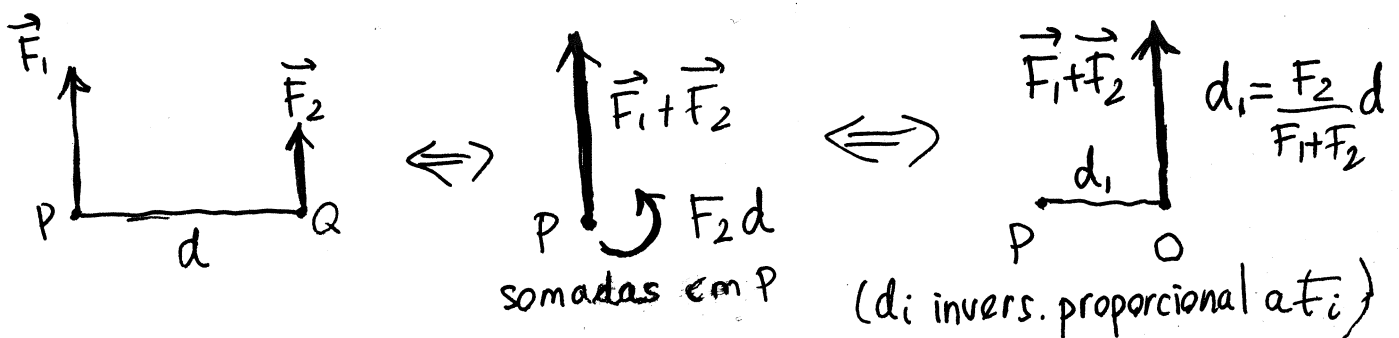 F⃗₁
F⃗₂
P
d
Q
⟺
F⃗₁+F⃗₂
P
F₂d
somadas em P
⟺
F⃗₁+F⃗₂
d₁=F₂/(F₁+F₂) d
d₁
P
O
(di invers. proporcional a Fi)